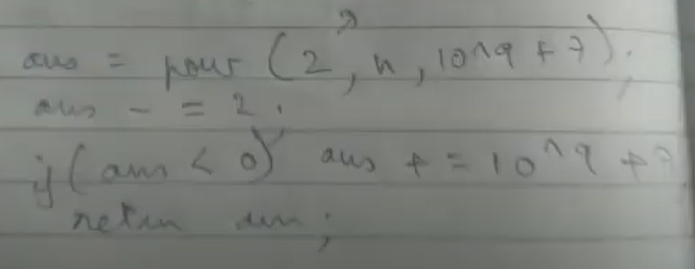 ans = pour (2, n, 10^9 + 7);
ans - = 2.
if (ans < 0) ans + = 10^9 + 7
return ans;